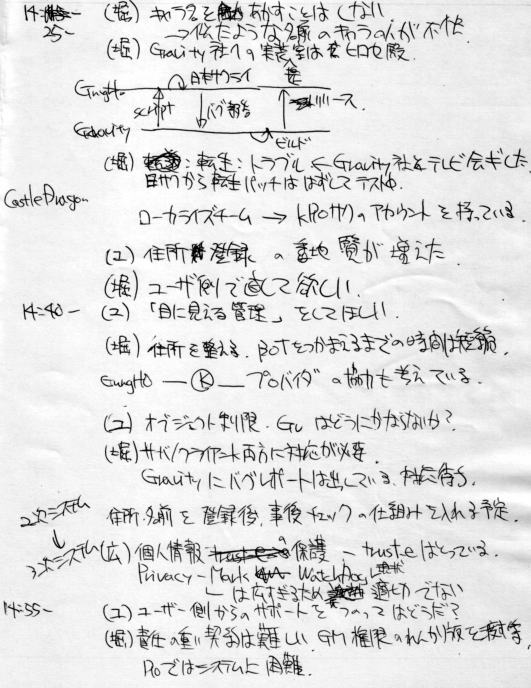 14:
25~
(堀) キャラ名をあかすことはしない
→似たような名前のキャラの人が不快
(堀) Gravity社への実装はヒロセ殿
GungHo 日本サクライ
script バグ報告 リリース
Gravity ビルド
(堀) 転生: トラブル ← Gravity社とテレビ会ギした
から転生パッチははずしてテスト中.
CastleDragon
ローカライズチーム → kROサクのアカウントを持っている.
(ユ) 住所登録の番地覧が増えた
(堀) ユーザ側で直して欲しい.
14:40~ (ユ) 「目に見える管理」をしてほしい.
(堀) 住所を整える. BOTをつかまえるまでの時間は短縮.
GungHo — Ⓚ — プロバイダの協力も考えている.
(ユ) オブジェクト制限. Gv はどうにかならないか?
(堀) サバ/クライアント両方に対応が必要.
Gravityにバグレポートは出している. 対応待ち.
2次システム 住所・名前を登録後, 事後チェックの仕組みを入れる予定.
↓
3次システム (広) 個人情報の保護 — trusteはとっている.
Privacy-Mark WatchDog
は広すぎるため適切でない
14:55~ (ユ) ユーザー側からのサポートをつのってはどうだ?
(堀) 責任の重い契約は難しい. GM権限のれんか版を渡す等
ROではシステム上困難.